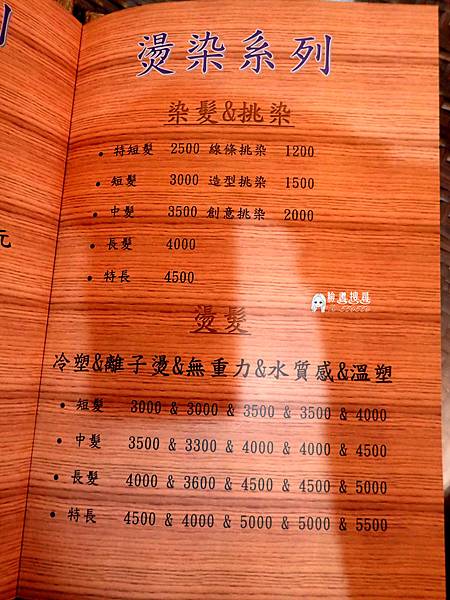 燙染系列
染髮&挑染
• 特短髮 2500 線條挑染 1200
• 短髮 3000 造型挑染 1500
• 中髮 3500 創意挑染 2000
• 長髮 4000
• 特長 4500
元
燙髮
冷塑&離子燙&無重力&水質感&溫塑
• 短髮 3000 & 3000 & 3500 & 3500 & 4000
• 中髮 3500 & 3300 & 4000 & 4000 & 4500
• 長髮 4000 & 3600 & 4500 & 4500 & 5000
• 特長 4500 & 4000 & 5000 & 5000 & 5500